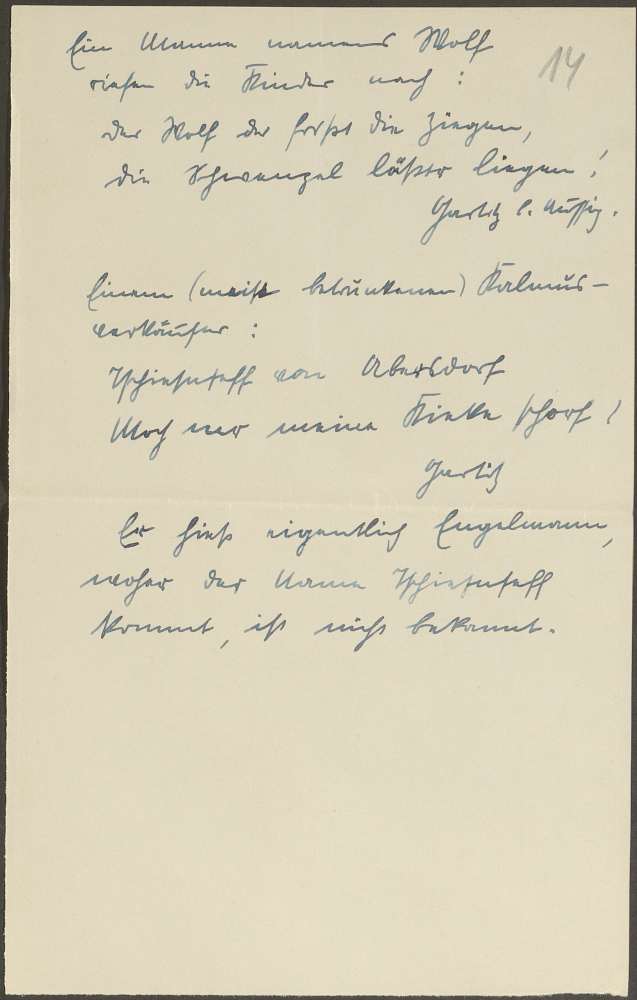 Ein Manne namens Wolf
14
riefen die Kinder nach :
der Wolf der frißt die Ziegen,
die Schwenzel läßter liegen !
Gartitz b. Aussig.
Einem (meist betrunkenen) Kalmus-
verkäufer :
von Abersdorf
Moch mer meine Kieke schorf !
Gartitz
Er hieß eigentlich Engelmann,
woher der Name
kommt, ist nicht bekannt.